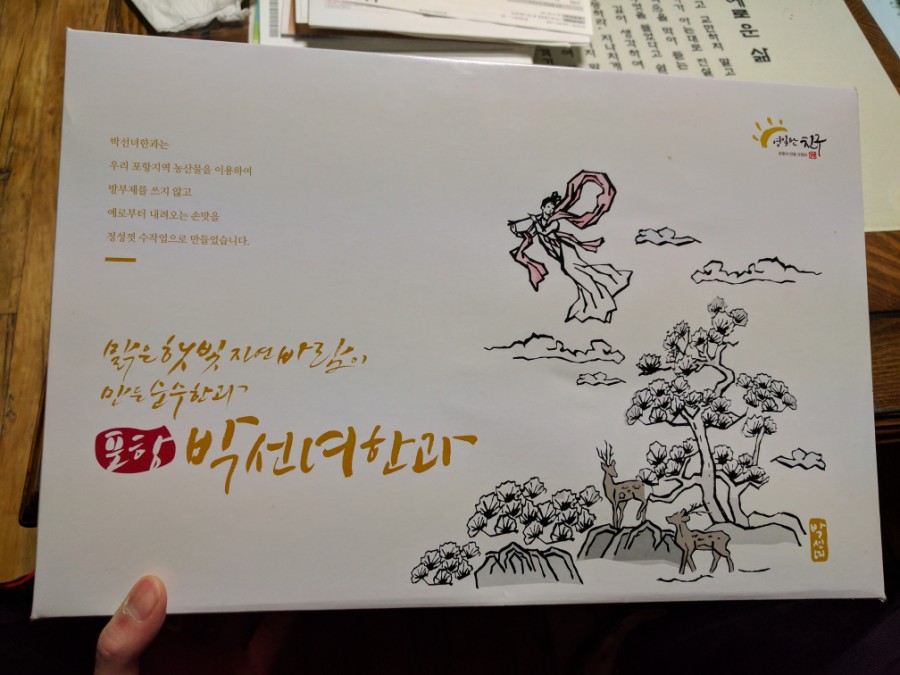 로운 삶
교만하지 말고
들었다고
깊이 생각하여
지나치게
영일만 친구
박선녀한과는
우리 포항지역 농산물을 이용하여
방부제를 쓰지 않고
예로부터 내려오는 손맛을
정성껏 수작업으로 만들었습니다.
맑은 햇빛 자연 바람이
만든 순수한과
포항 박선녀한과
박선녀